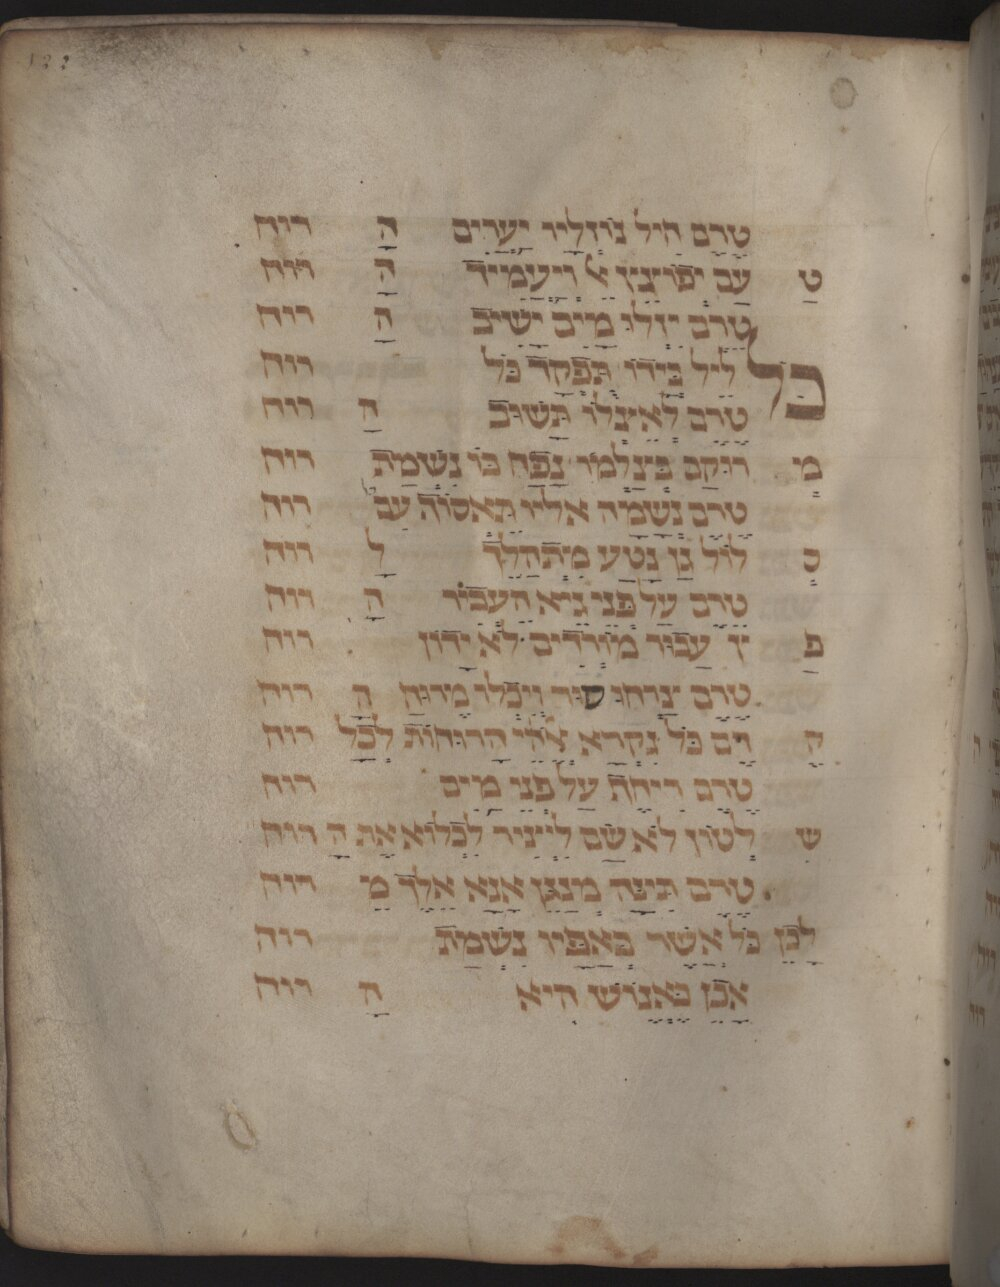 122
טֶרֶם חִיל נוֹזְלָיו יַעֲרִים הָ רוח
טַ עַם יְפוֹצֵץ לְ וְיַעֲמִיד הָ רוח
טֶרֶם יִזְּלוּ מַיִם יַשִּׁיב הָ רוח
כָּל לֵיל בְּיָדוֹ תָּפְקַד כָּל רוח
טֶרֶם לְאֶצְלוֹ תָּשׁוּב הָ רוח
מָ רוּקַם בְּצַלְמוֹ נָפַח בּוֹ נִשְׁמַת רוח
טֶרֶם נְשָׁמָה אֵלָיו תַּאֲסוֹף עִם רוח
כְּ לוּל גַּן נָטַע מִתְהַלֵּךְ לְ רוח
טֶרֶם עַל פְּנֵי גֵיא הֶעֱבִיר הָ רוח
פַּ ץ עֲבוּר מוֹרְדִים לֹא יָדוֹן רוח
טֶרֶם צָרְחוּ סוּר וַיִּכְלוּ מֵרוּחַ הָ רוח
הֲ וִם כֹּל נִקְרָא אֱלֹהֵי הָרוּחוֹת לְכָל רוח
טֶרֶם רִיחֵף עַל פְּנֵי מַיִם רוח
שִׁ לְטוֹן לֹא שָׂם לַיְּצִיר לִכְלוֹא אֶת הָ רוח
טֶרֶם מִנֶּגֶן אָנָא אֵלֵךְ מֵ רוח
לָכֵן כֹּל אֲשֶׁר בְּאַפָּיו נִשְׁמַת רוח
אָכֵן בֶּאֱנוֹשׁ הִיא הָ רוח